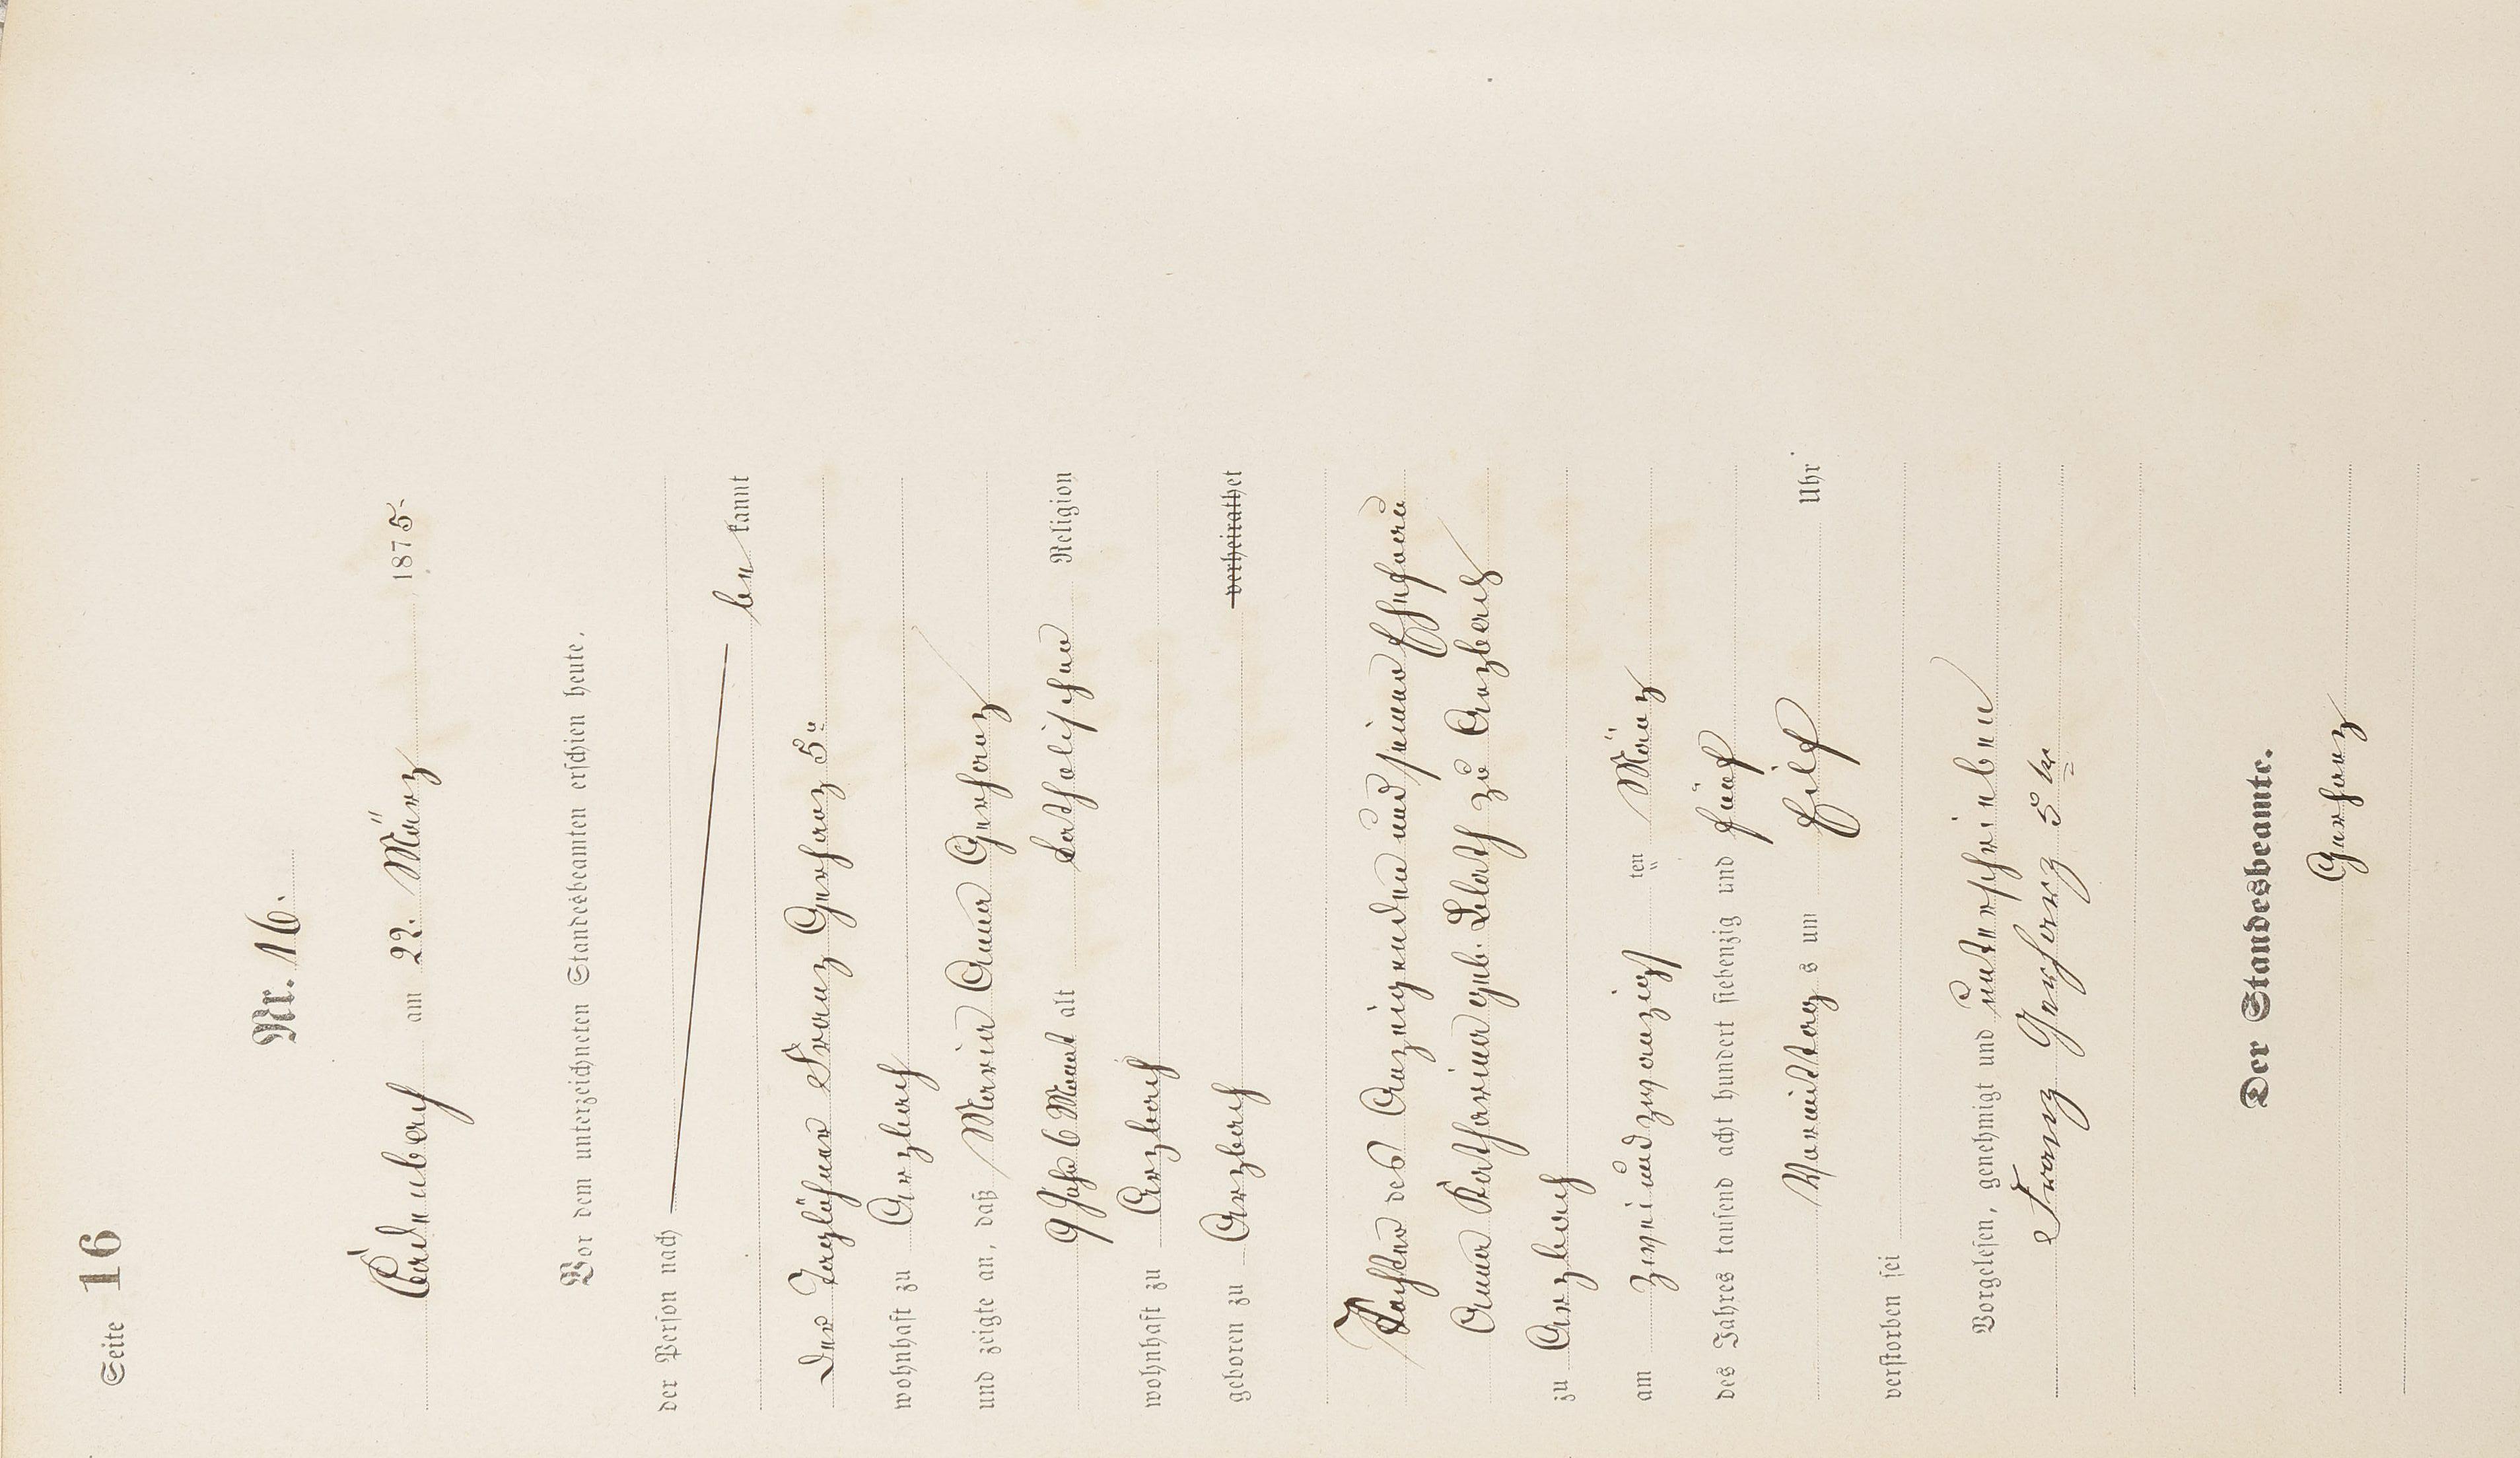 Seite 16
Nr. 16.
Kadenbach am 22. März 1875.
Vor dem unterzeichneten Standesbeamten erschien heute,
der Person nach
be kannt
der Taglöhner Franz Gerharz 5r
wohnhaft zu Arzbach
und zeigte an, daß Maria Anna Gerharz
9 Jahr 6 Monat alt katholischer Religion
wohnhaft zu Arzbach
geboren zu Arzbach verheirathet
Tochter des Anzeigenden und seiner Ehefrau
Anna Katharina geb. zu Arzbach
zu Arzbach
am zweiundzwanzigst ten März
des Jahres tausend acht hundert siebenzig und fünf
Vormittag s um Eilf Uhr
verstorben sei
Vorgelesen, genehmigt und unterschrieben
Franz Gerharz 5ter
Der Standesbeamte.
Gerharz